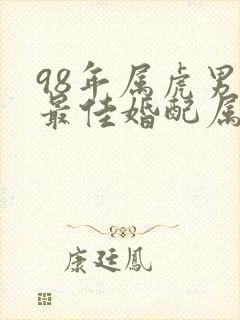 98年属虎男
最佳婚配属
康廷鳳